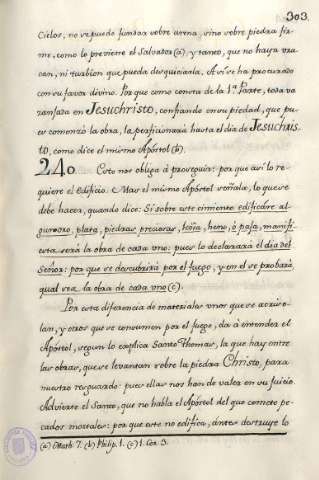 303.
Cielos, no se puede fundar sobre arena, sino sobre piedra fir-
me, como lo previene el Salvador (a), y tanto, que no haya vra-
can, ni turbion que pueda desquiciarla. Asi se ha procurado
con su favor divino. Porque como consta de la 1ª Parte, toda va
zanjada en Jesuchristo, confiando en su piedad, que pu-
es comenzó la obra, la perficionará hasta el dia de Jesuchris-
to, como dice el mismo Apóstol (b).
240 Esto nos obliga à proseguir: por que asi lo re-
quiere el edificio. Mas el mismo Apóstol señala, lo que se
debe hacer, quando dice: Si sobre este cimiento edificare al-
guno oro, plata, piedras preciosas, leña, heno, ò paja, manifi-
esta será la obra de cada uno: pues lo declarará el dia del
Señor: por que se descubrirá por el fuego, y en él se probará
qual sea la obra de cada uno (c).
Por esta diferencia de materiales unos que se acriso-
lan, y otros que se consumen por el fuego, dà à entender el
Apóstol, segun lo explica Santo Thomas, la que hay entre
las obras, que se levantan sobre la piedra Christo, para
nuestro resguardo: pues ellas nos han de valer en su juicio.
Advierte el Santo, que no habla el Apóstol del que comete pe-
cados mortales: por que este no edifica, antes destruye lo
(a) Math. 7. (b) Philip. 1. (c) 1. Cor. 3.